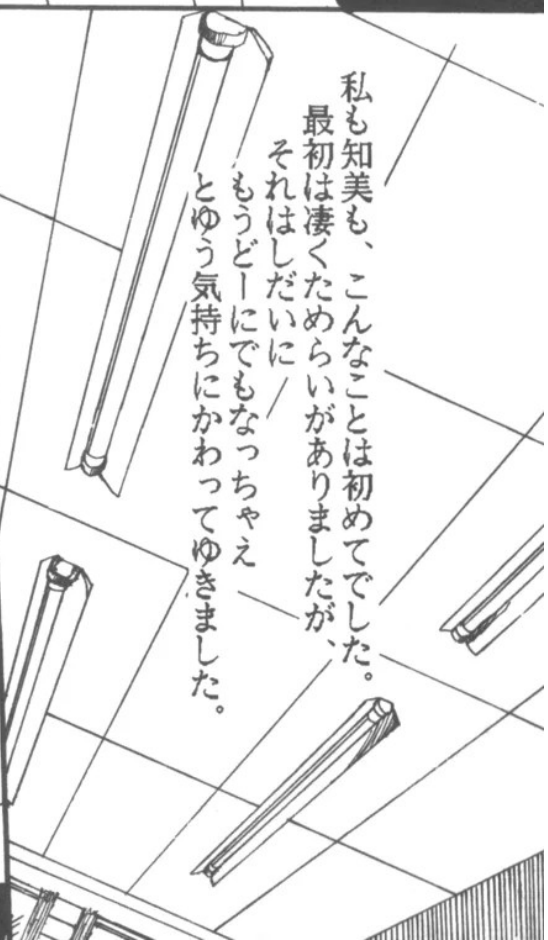 私も知美も、こんなことは初めてでした。
最初は凄くためらいがありましたが、
それはしだいに
もうどーにでもなっちゃえ
とゆう気持ちにかわってゆきました。